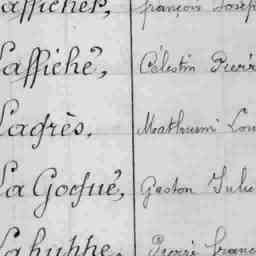 affiches, françois Joseph
Laffiché, Célestin Pierre
Lagrès, Mathurin Lou
La Goguè, Gaston Jule
Lahuppe, Pierre franc